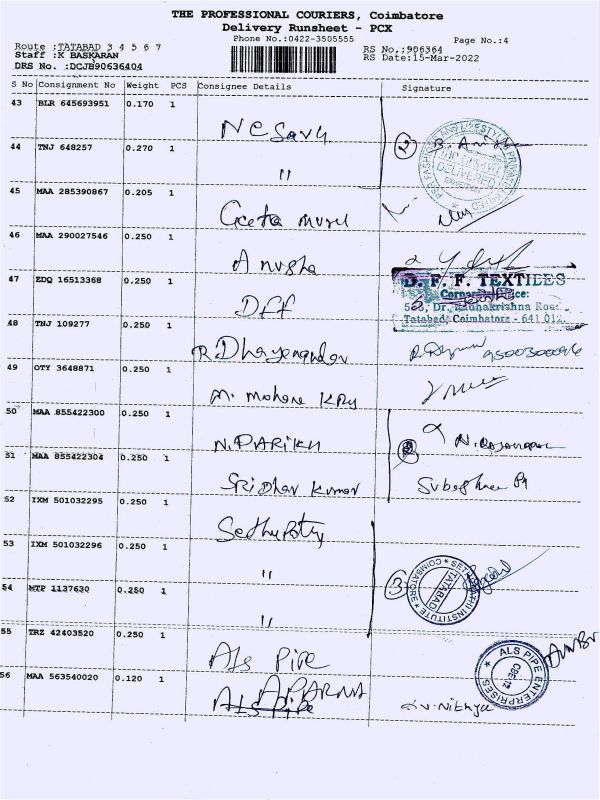 THE PROFESSIONAL COURIERS, Coimbatore
Delivery Runsheet - PCX
Phone No.:0422-3505555
Page No.:4
Route :TATABAD 3 4 5 6 7
Staff :K BASKARAN
DRS No. :DCJB90636404
RS No.;906364
RS Date:15-Mar-2022
S No Consignment No Weight PCS Consignee Details Signature
43 BLR 645693951 0.170 1
44 TNJ 648257 0.270 1
" 2
45 MAA 285390867 0.205 1
Geetha
46 MAA 290027546 0.250 1
Anusha
47 EDQ 16513368 0.250 1
DFF
D. F. F. TEXTILES
Corporate Office:
Dr. Radhakrishna Road,
Tatabad, Coimbatore - 641 012.
48 TNJ 109277 0.250 1
R
49 OTY 3648871 0.250 1
M. Mohana
50 MAA 855422300 0.250 1
N. PARIKH N.
51 MAA 855422304 0.250 1
SRiDhar Kumar
52 IXM 501032295 0.250 1
53 IXM 501032296 0.250 1
" 3
INSTITUTE
TATABAD
COIMBATORE
54 MTP 1137630 0.250 1
"
55 TRZ 42403520 0.250 1
ALS PIPE
ALS PIPE ENTERPRISES
CBE-12
56 MAA 563540020 0.120 1
APARNA
ALS Pipe